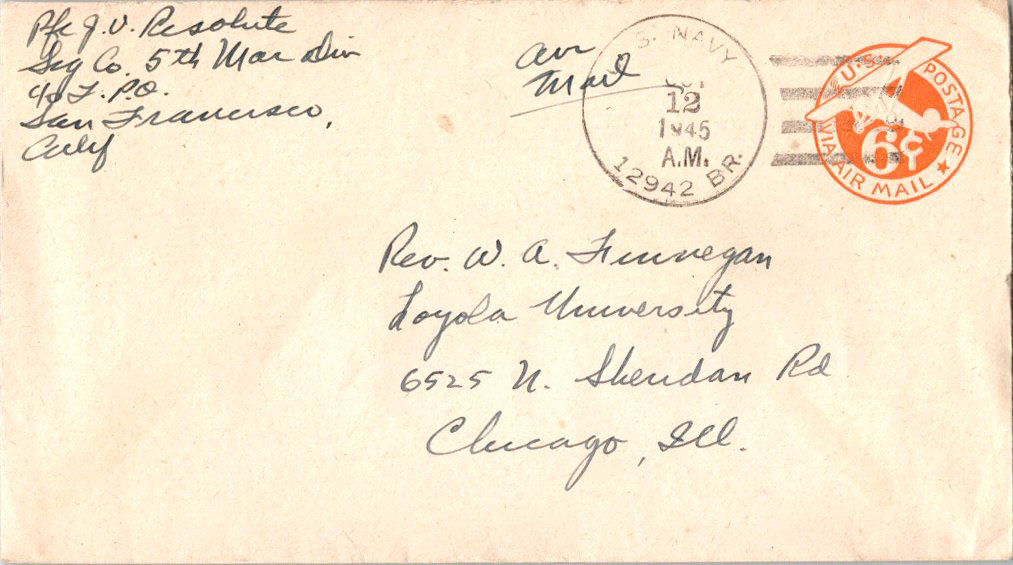 Pfc J. V. Resolute
Sig Co. 5th Mar Div
c/o F.P.O.
San Francisco,
Calif
Air
Mail
S. NAVY
12
1945
A.M.
12942 BR.
U.S. POSTAGE
6¢
VIA AIR MAIL
Rev. W. A. Finnegan
Loyola University
6525 N. Sheridan Rd
Chicago, Ill.